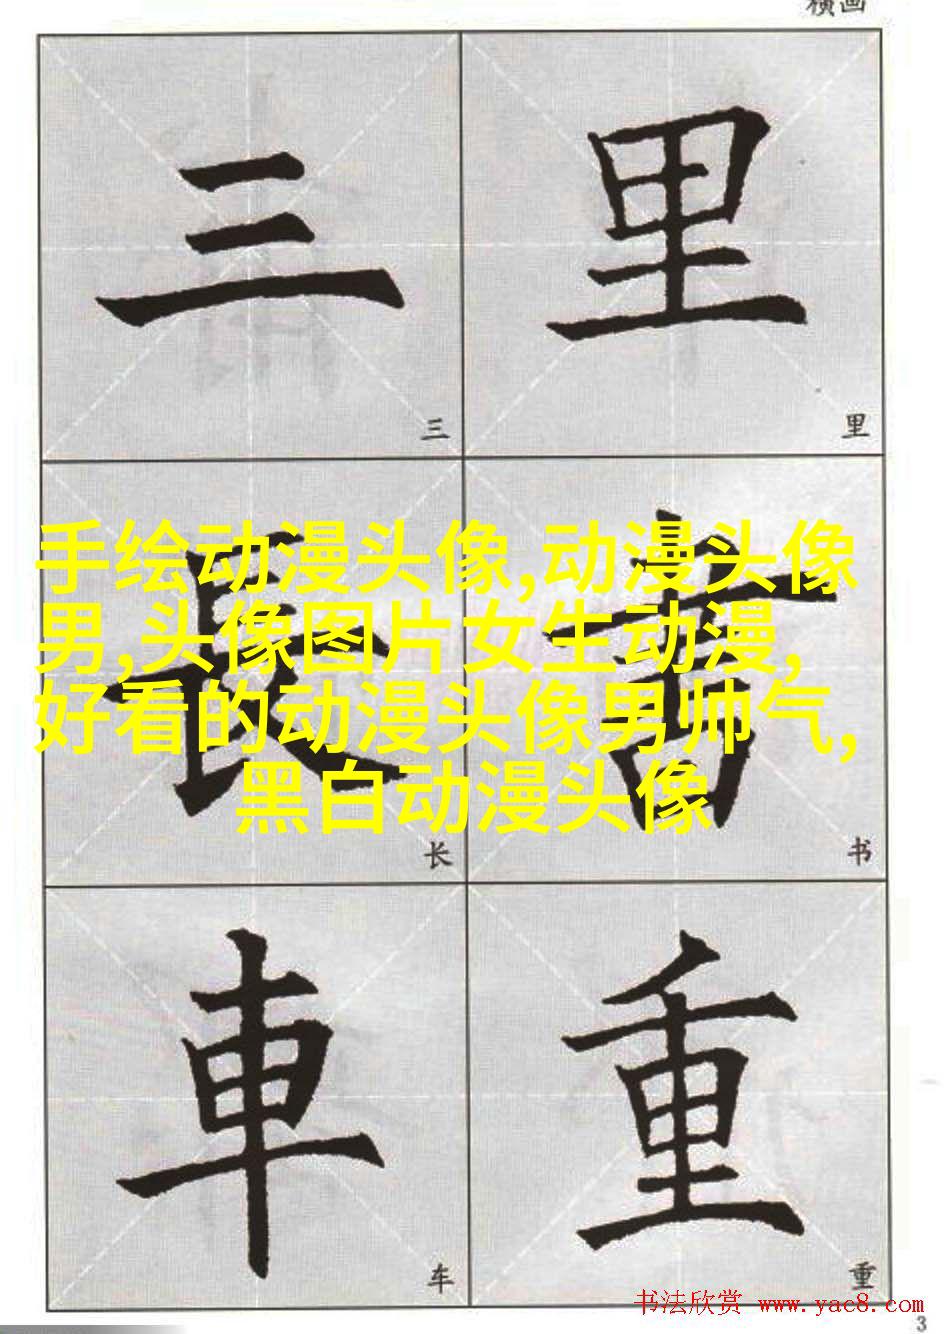 横画
三
里
三
里
手绘动漫头像,动漫头像
男,头像图片女生动漫,
好看的动漫头像男帅气,
黑白动漫头像
長
書
长
书
車
重
车
重
书法欣赏 www.yac8.com
3